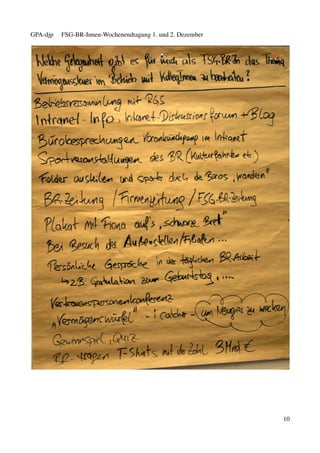 GPA-djp FSG-BR-Innen-Wochenendtagung 1. und 2. Dezember
Welche Gelegenheit gibt es für mich als FSG-BRIn das Thema
Vermögenssteuer im Betrieb mit KollegInnen zu bearbeiten?
Betriebsversammlung mit RGS
Intranet-Info, Intranet Diskussionsforum + Blog
Bürobesprechungen Vorankündigung im Intranet
Sportveranstaltungen des BR (Kulturfahrten etc)
Folder austeilen und später durch die Büros „wandern"
BR-Zeitung / Firmenzeitung / FSG-BR-Zeitung
Plakat mit Fiona auf's „schwarze Brett"
Bei Besuch der Außenstellen/Filialen ...
Persönliche Gespräche in der täglichen BR Arbeit
↳ z.B. Gratulation zum Geburtstag, ....
Vertrauenspersonenkonferenz
„Vermögenswürfel" - i catcher - um Neugier zu wecken
Gewinnspiel, Quiz
BR-tragen T-Shirts mit der Zahl 3 Mrd €
10